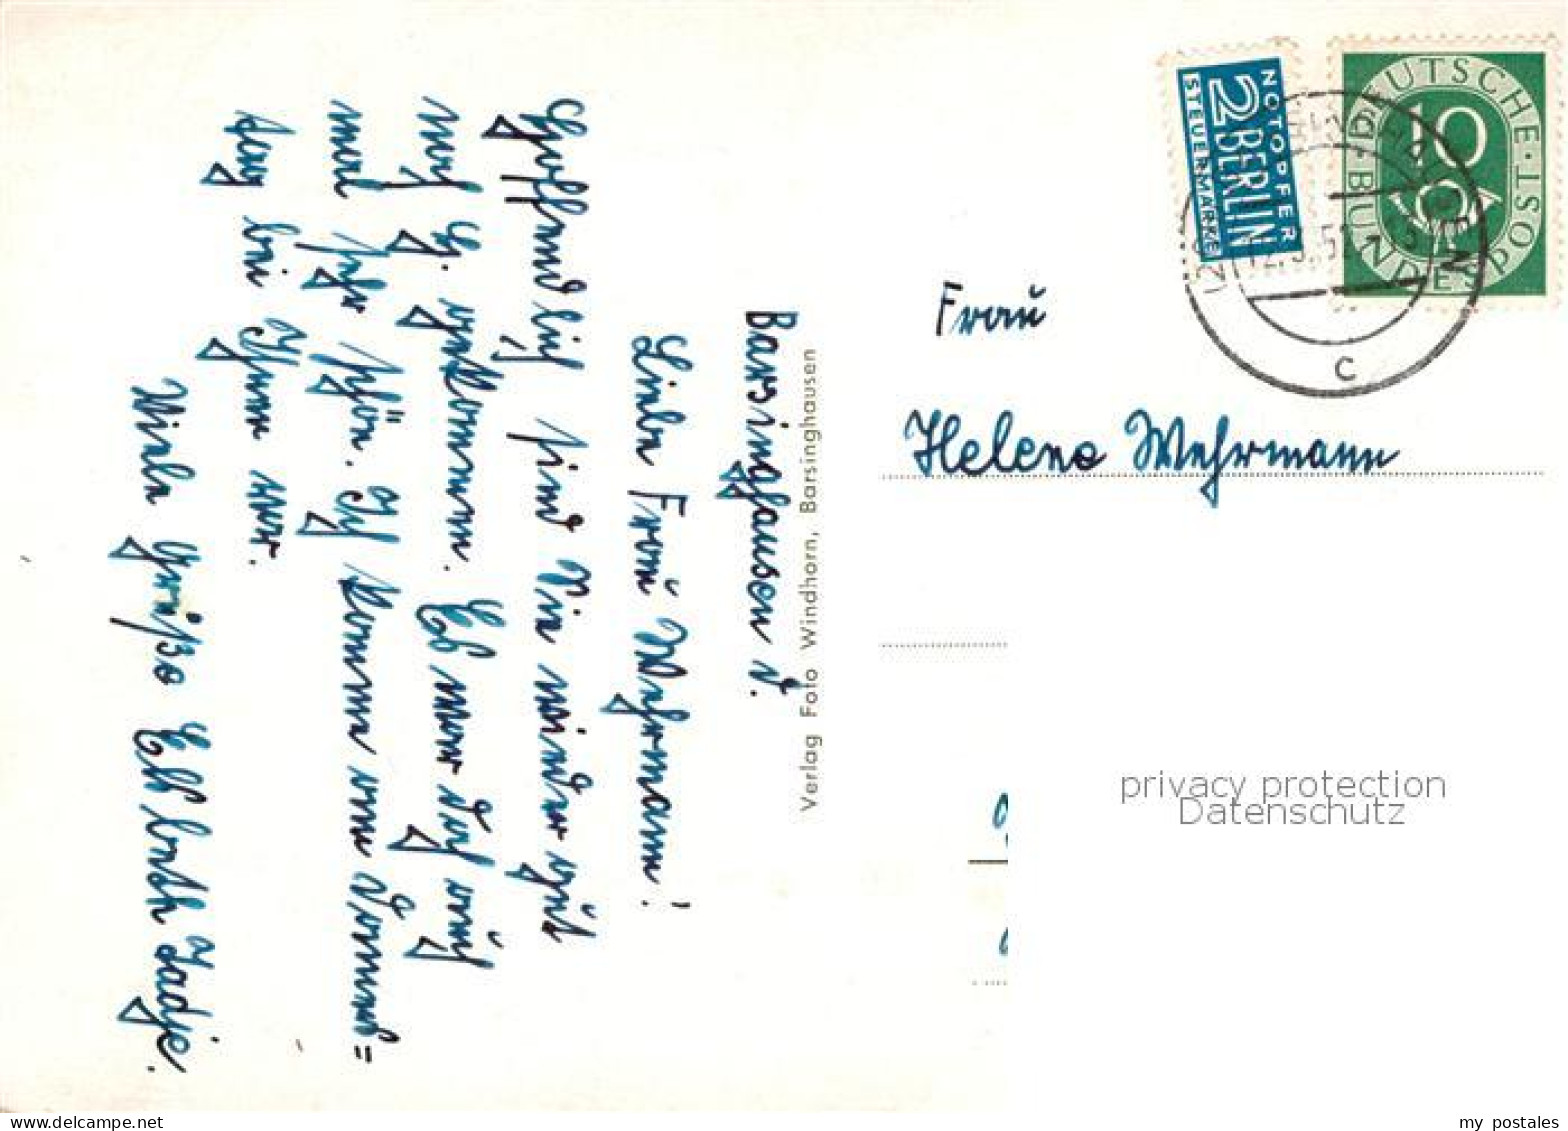 Barsinghausen d.
Liebe Frau Wehrmann!
Hoffentlich sind Sie wieder gut
nach H. gekommen. Es war doch auch
mal sehr schön. Ich komme am Donners=
tag bei Ihnen vor.
Viele Grüße Elsbeth Tadje.
Verlag Foto Windhorn, Barsinghausen
NOTOPFER
2 BERLIN
STEUERMARKE
DEUTSCHE · BUNDESPOST
10
c
Frau
Helene Wehrmann
privacy protection
Datenschutz
my postales